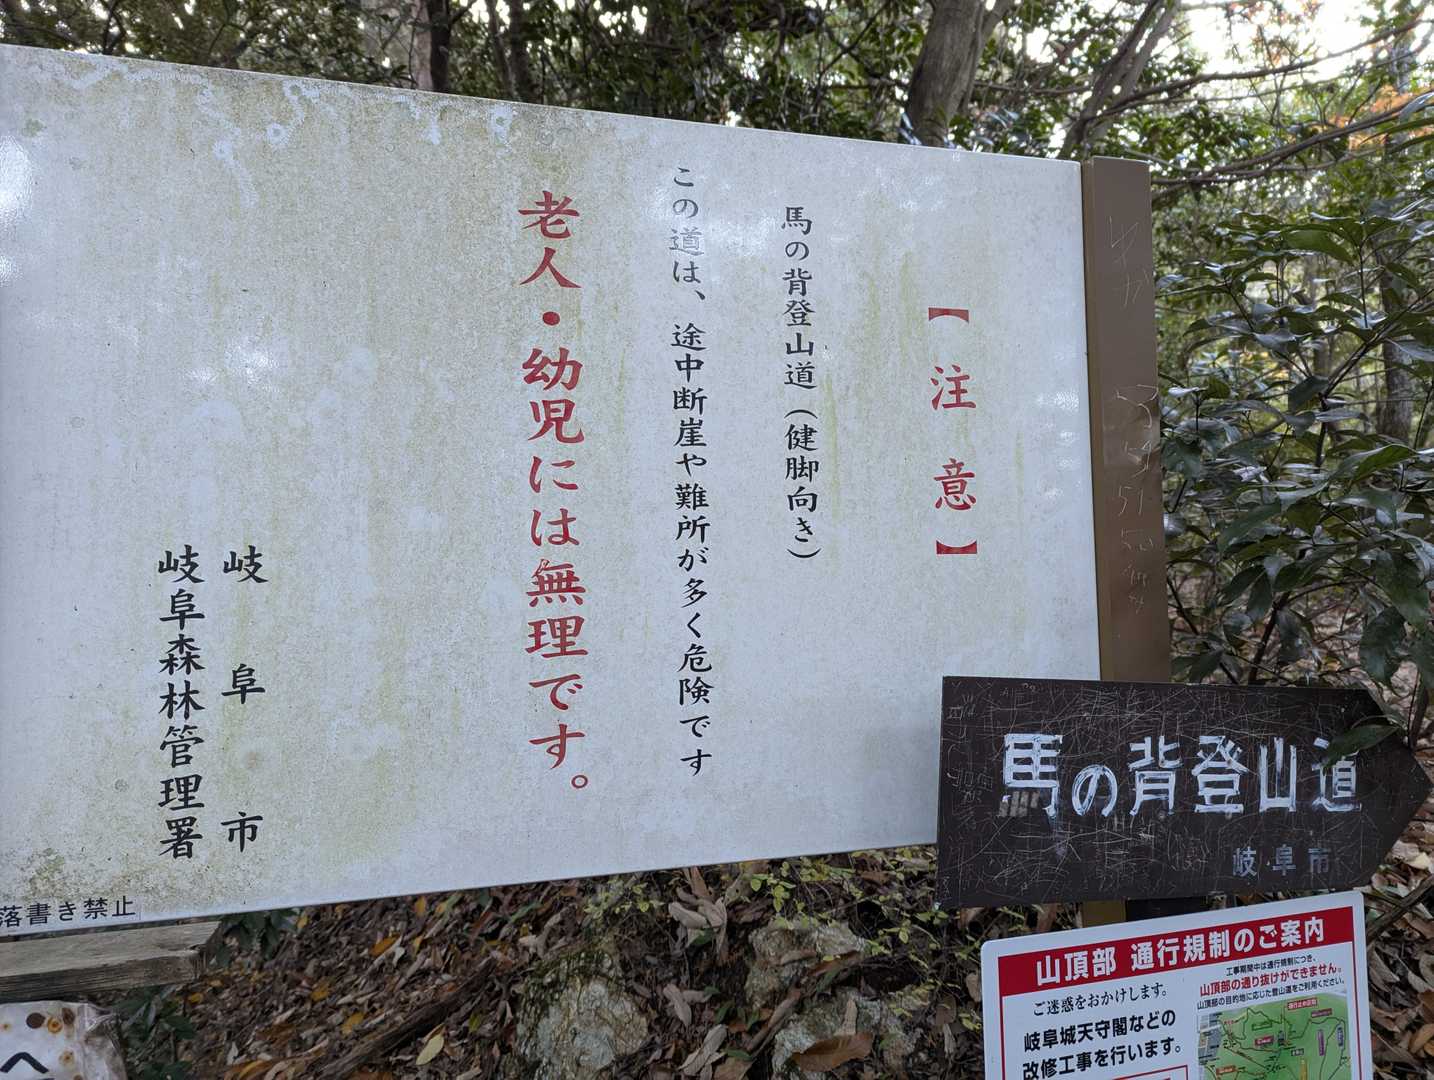 【注意】
馬の背登山道（健脚向き）
この道は、途中断崖や難所が多く危険です
老人・幼児には無理です。
岐阜市
岐阜森林管理署
落書き禁止
馬の背登山道
岐阜市
山頂部 通行規制のご案内
ご迷惑をおかけします。
岐阜城天守閣などの
改修工事を行います。
工事期間中は通行規制につき、
山頂部の通り抜けができません。
山頂部の目的地に応じた登山道をご利用ください。
へ